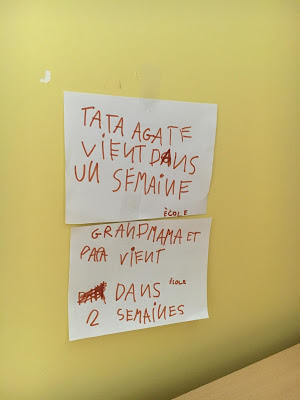 TATA AGATE
VIENT DANS
UN SÉMAINE
ÉCOLE
GRANDMAMA ET
PAPA VIENT
ÉCOLE
DANS
2 SEMAINES